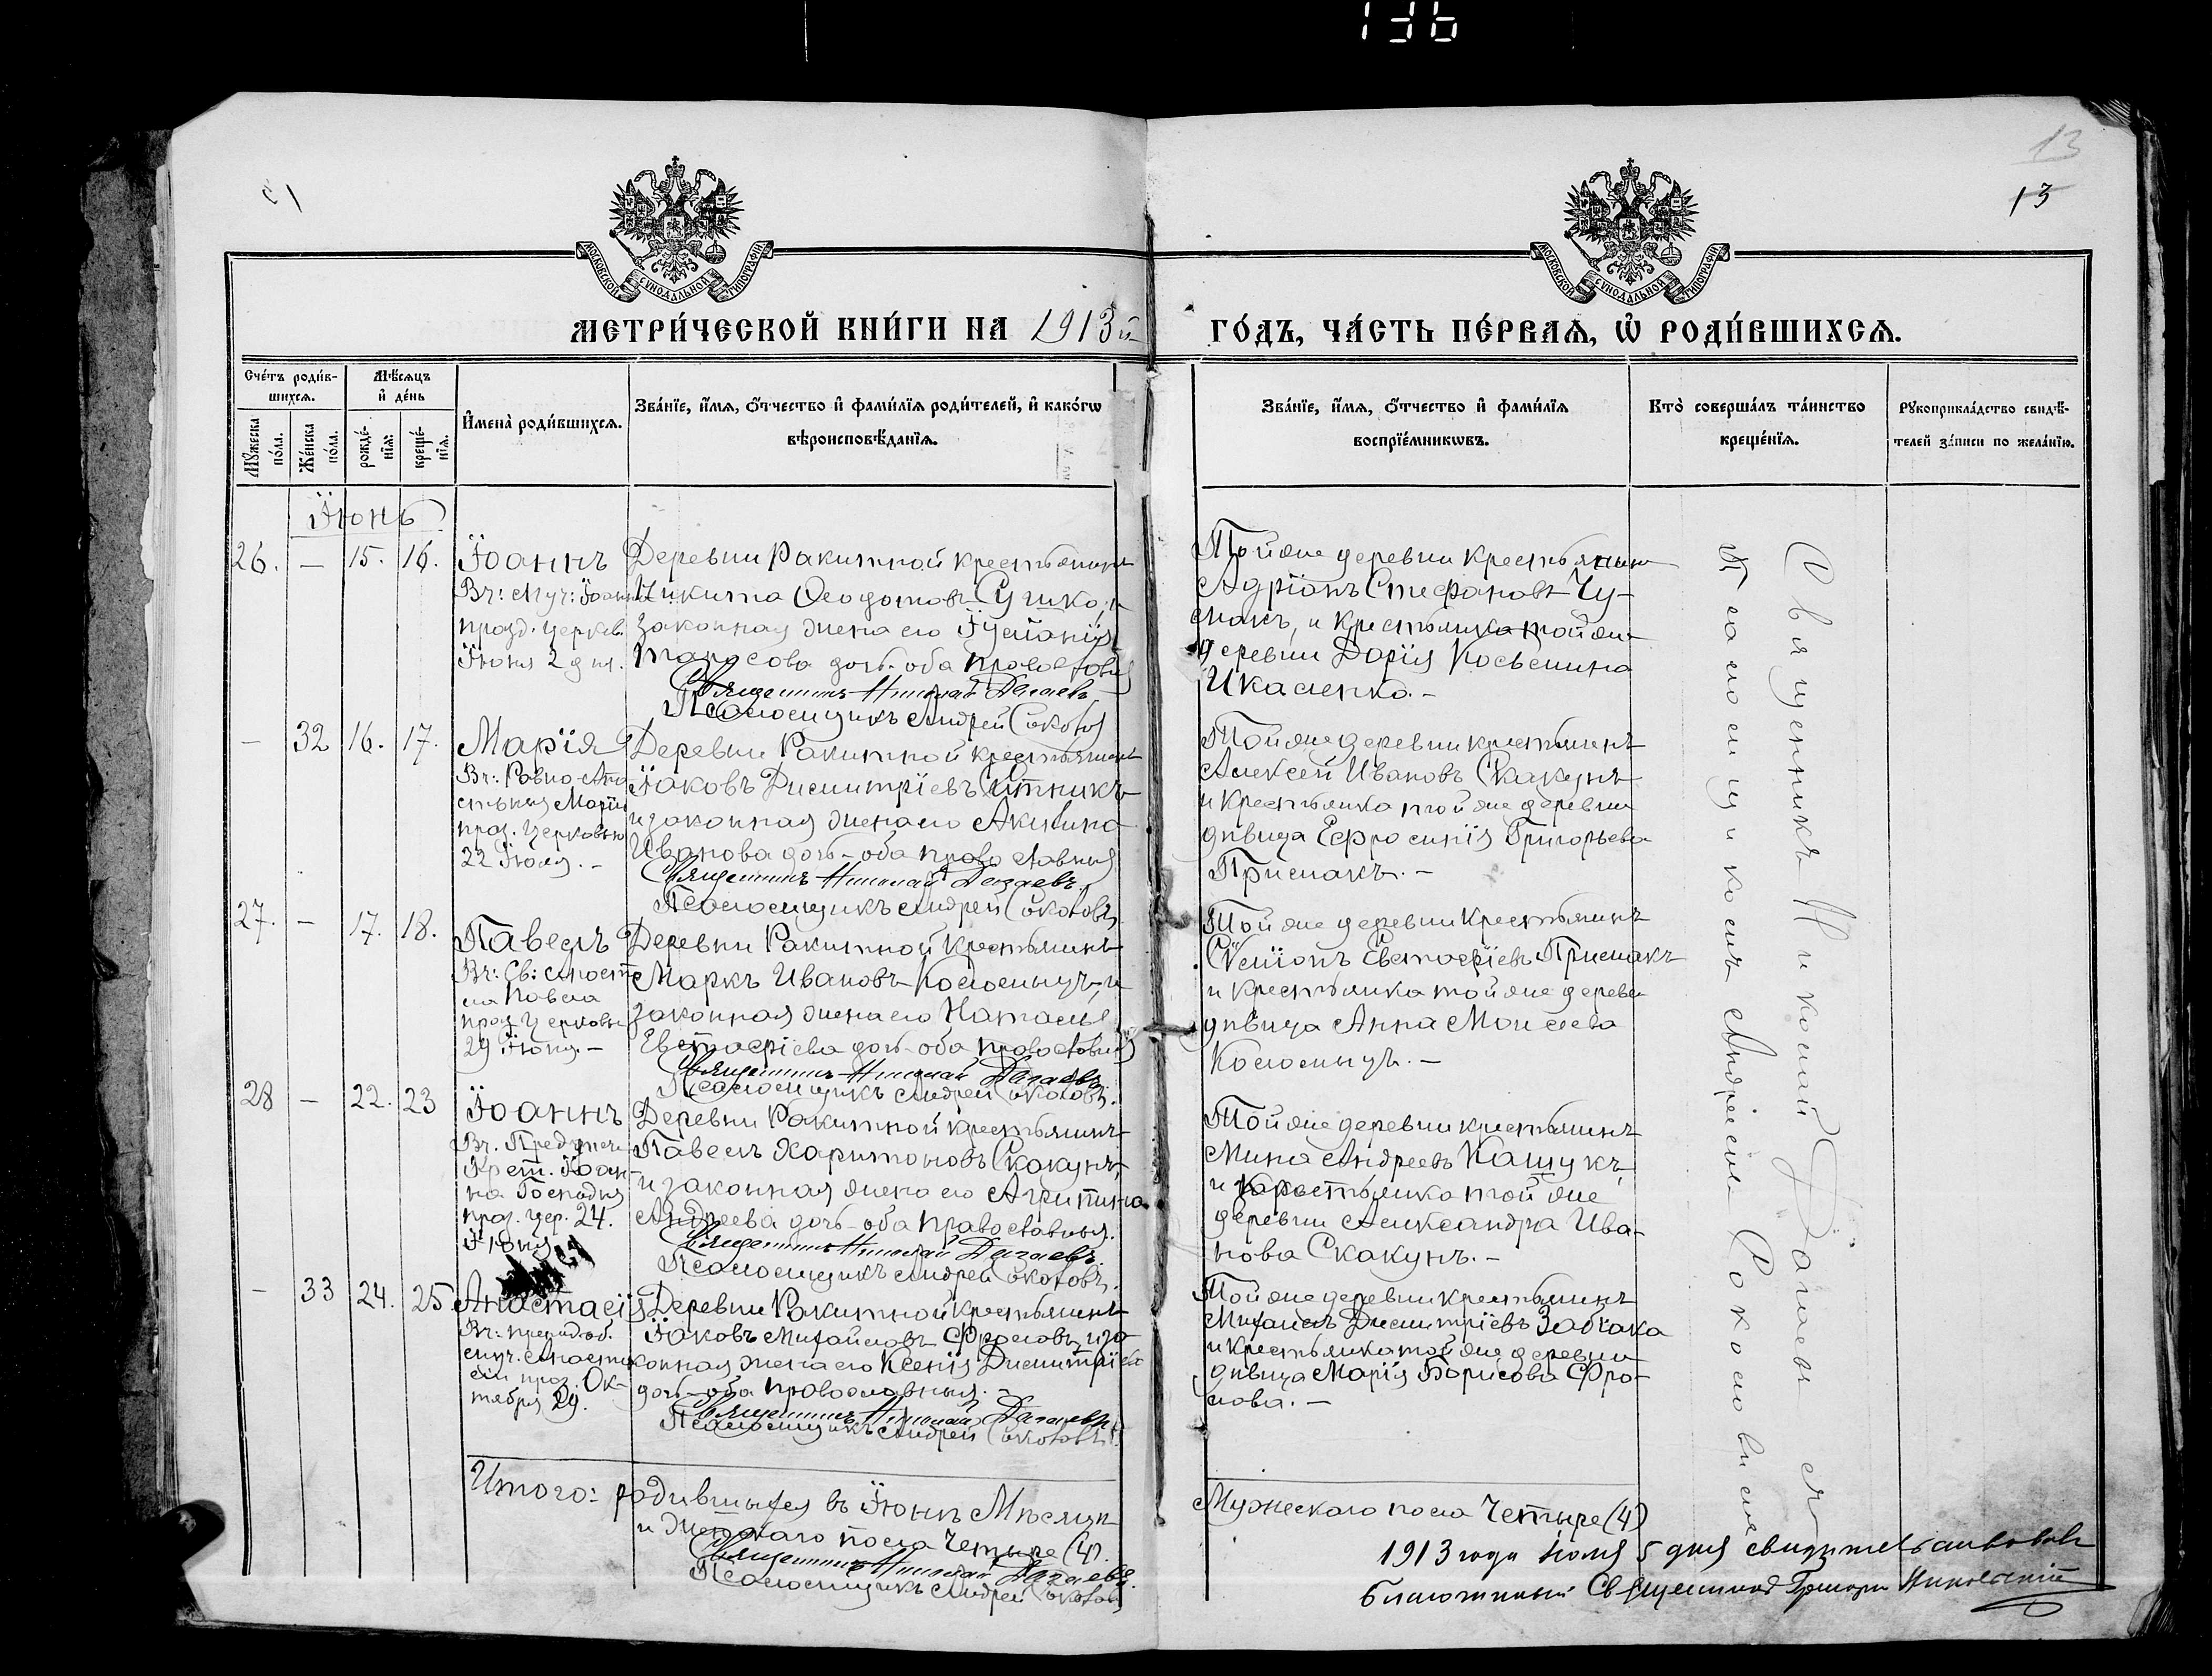 136
13
13
МОСКОВСКОЙ СѴНОДАЛЬНОЙ ТИПОГРАФІИ
МОСКОВСКОЙ СѴНОДАЛЬНОЙ ТИПОГРАФІИ
МЕТРИ́ЧЕСКОЙ КНИ́ГИ НА 1913й
ГО́ДЪ, ЧА́СТЬ ПЕ́РВАѦ, Ѡ҆ РОДИ́ВШИХСѦ.
Сче́тъ роди́в-
шихсѧ.
Мѣ́сѧцъ
и҆ де́нь
Мꙋ́жеска по́ла.
Же́нска по́ла.
рожде́-
нїѧ:
креще́-
нїѧ.
И҆мена̀ роди́вшихсѧ.
Зва́нїе, и҆́мѧ, о҆́тчество и҆ фами́лїѧ роди́телей, и҆ како́гѡ
вѣроисповѣ́данїѧ.
Зва́нїе, и҆́мѧ, о҆́тчество и҆ фами́лїѧ
воспрїе́мникѡвъ.
Кто̀ соверша́лъ та́инство
креще́нїѧ.
Рꙋкоприкла́дство свидѣ́-
телей за́писи по жела́нїю.
Іюнь
26. — 15. 16.
Іоаннъ
Вч: муч: Іоанна
празд. церков.
Іюня 2 дня.
Деревни Ракитной крестьянинъ
Никита Ѳеодотовъ Сушко, и
законная жена его Іустинія
Тарасова дочь – оба православн
Священникъ Николай Дагаевъ
Псаломщикъ Андрей Соколов
Той же деревни крестьянин
Адріанъ Стефановъ Чу-
макъ, и крестьянка той же
деревни Дарія Косьмина
Икаленко. –
— 32 16. 17.
Марія
Вч: Равно Апо
стольныя Маріи
праз. Церковью
22 Іюля. –
Деревни Ракитной крестьянинъ
Іаковъ Димитріевъ Ситникъ
и законная жена его Акилина
Иванова дочь – оба православныя
Священникъ Николай Дагаевъ.
Псаломщикъ Андрей Соколовъ
Той же деревни крестьянинъ
Алексей Ивановъ Скакунъ
и крестьянка той же деревни
дѣвица Ефросинія Григорьева
Примакъ. –
27. — 17. 18.
Павелъ
Вч: Св: Апост
ла Павла
праз. Церковью
29 Іюня. –
Деревни Ракитной крестьянинъ
Маркъ Ивановъ Коломыцъ, и
законная жена его Наталья
Евстафіева дочь – оба православны
Священникъ Николай Дагаевъ.
Псаломщикъ Андрей Соколовъ.
Той же деревни крестьянинъ
Симіонъ Евстафіевъ Примакъ
и крестьянка той же деревн
дѣвица Анна Моисеева
Коломыцъ. –
28 — 22. 23
Іоаннъ
Вч. Предтеч.
Крест. Іоан-
на Господня
праз. цер. 24.
Іюня
Деревни Ракитной крестьянинъ
Павелъ Харитоновъ Скакунъ,
и законная жена его Агрипина
Андреева дочь – оба православныя.
Священникъ Николай Дагаевъ.
Псаломщикъ Андрей Соколовъ.
Той же деревни крестьянинъ
Мина Андреевъ Кащукъ,
и крестьянка той же
деревни Александра Ива-
нова Скакунъ. –
— 33 24. 25
Анастасія
Вч: преподоб.
муч. Анаста
сіи праз. Ок-
тября 29.
Деревни Ракитной крестьянинъ
Іаковъ Михайловъ Фроловъ, и за
конная жена его Ксенія Димитріева
дочь – оба православныя. –
Священникъ Николай Дагаевъ
Псаломщикъ Андрей Соколовъ.
Той же деревни крестьянинъ
Михаилъ Димитріевъ Забіака
и крестьянка той же деревни
дѣвица Марія Борисова Фро-
лова. –
Священникъ Николай Дагаевъ
Псаломщикомъ Андреемъ Соколовымъ
Итого: родившихся въ Іюнѣ Мѣсяцѣ
и женскаго пола Четыре (4).
Священникъ Николай Дагаевъ.
Псаломщикъ Андрей Соколов
Мужескаго пола Четыре (4)
1913 года Іюля 5 дня свидѣтельствовалъ
благочинный Священникъ Григорій Никольскій